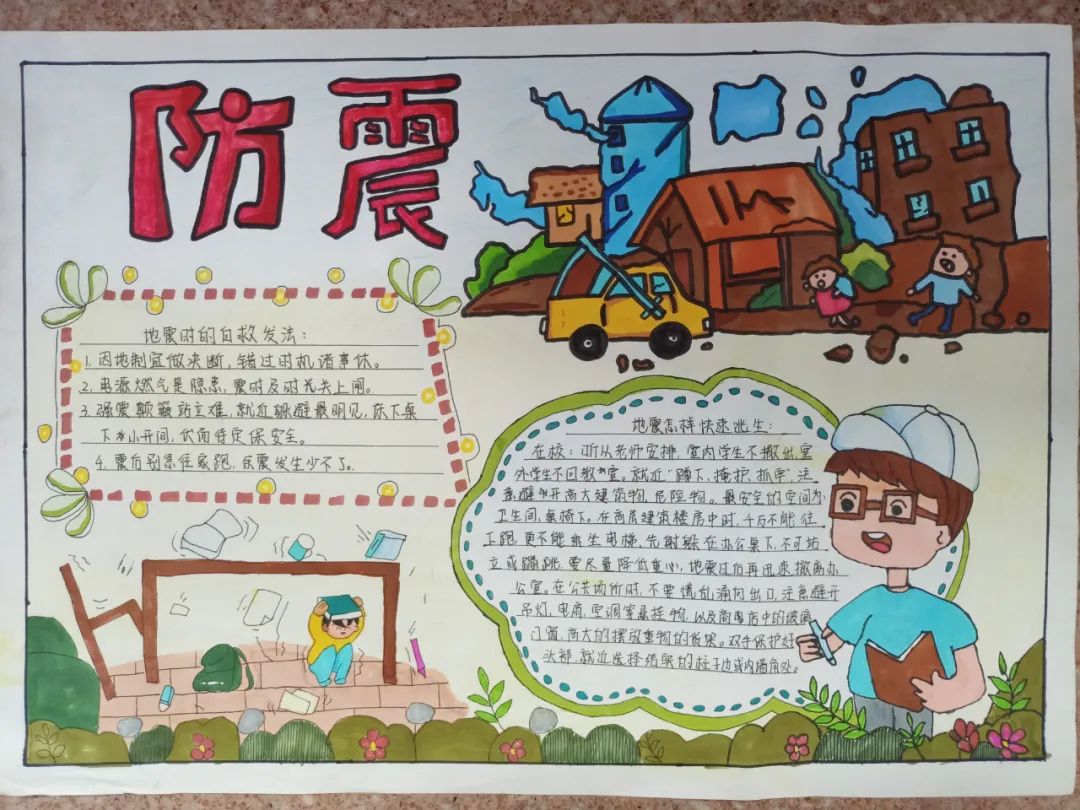 防震
地震时的自救发法:
1. 因地制宜做决断,错过时机诸事休。
2. 电源燃气是隐患,震时及时先关上闸。
3. 强震颠簸站立难,就近躲避最明见,床下桌
下小开间,伏而待定保安全。
4. 震后别急往家跑,余震发生少不了。
地震怎样快速逃生:
在校:听从老师安排,室内学生不撤出,室
外学生不回教室。就近"蹲下,掩护,抓牢",注
意避开高大建筑物,危险物。最安全的空间为:
卫生间,桌椅下。在高层建筑楼房中时,千万不能往
下跑,更不能乘坐电梯,先射躲在办公桌下,不可站
立或蹦跳,要尽量降低重心,地震过后再迅速撤离办
公室。在公共场所时,不要慌乱涌向出口,注意避开
吊灯,电扇,空调等悬挂物,以及商店中的玻璃
门窗,高大的摆放重物的货架。双手保护好
头部,就近选择结实的柱子边或内墙角处。